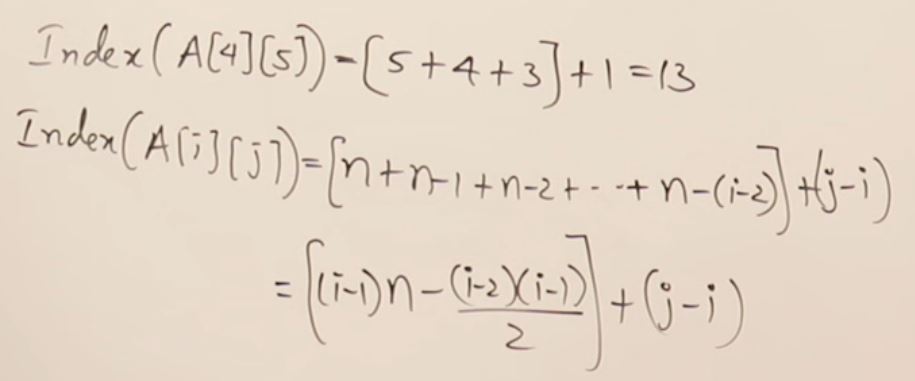 Index(A[4][5])=[5+4+3]+1=13
Index(A[i][j])=[n+n-1+n-2+--+n-(i-2)]+(j-i)
=[(i-1)n-(i-2)(i-1)/2]+(j-i)